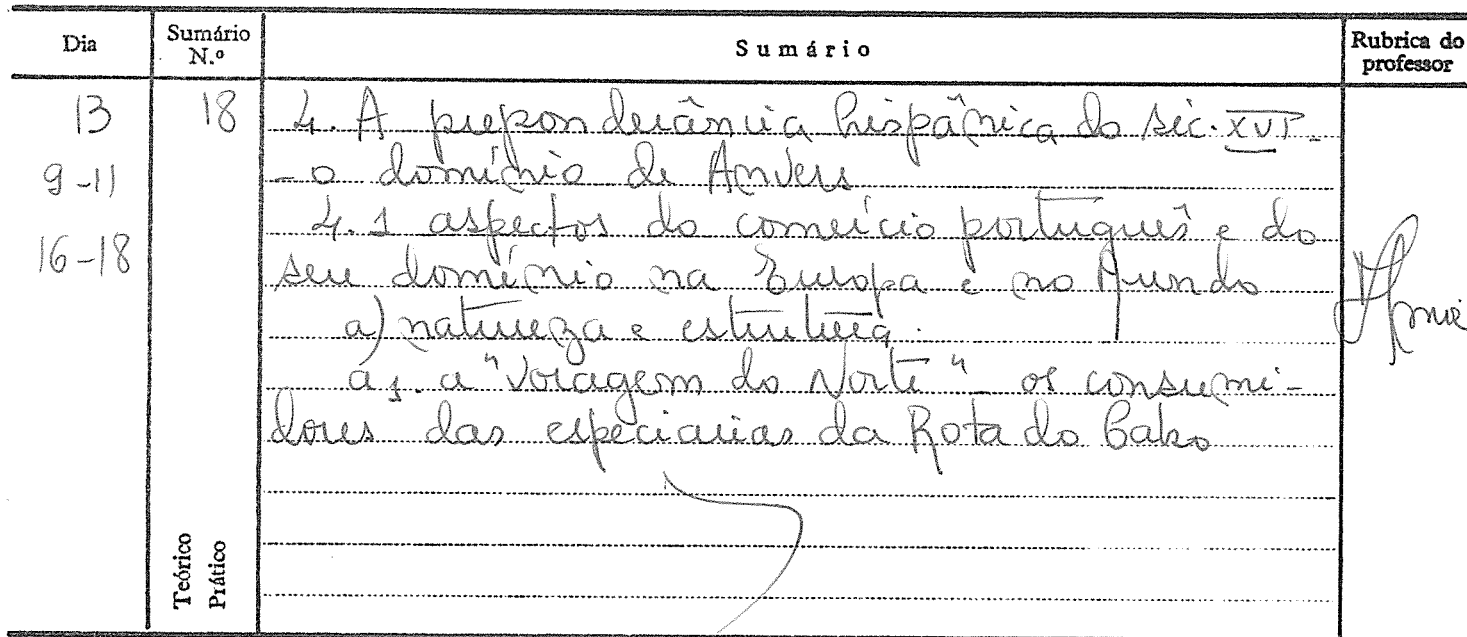 Dia Sumário N.º Sumário Rubrica do professor
13 18 4. A preponderância hispânica do séc. XVI -
9-11 - o domínio de Anvers
4.1 aspectos do comércio português e do
16-18 seu domínio na Europa e no Mundo
a) natureza e estrutura.
a1. a "voragem do Norte" - os consumi-
dores das especiarias da Rota do Cabo
Teórico
Prático